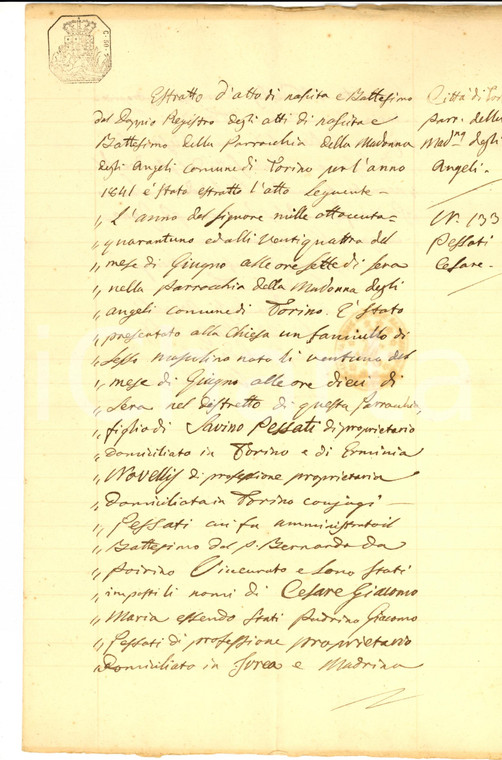 Estratto d'atto di nascita e Battesimo
dal Doppio Registro degli atti di nascita e
Battesimo della Parrocchia della Madonna
degli Angeli comune di Torino per l'anno
1841 è stato estratto l'atto seguente =
„ L'anno del signore mille ottocento =
„ quarantuno ed alli ventiquattro del
„ mese di Giugno alle ore sette di sera
„ nella parrocchia della Madonna degli
„ angeli comune di Torino. È stato
„ presentato alla Chiesa un fanciullo di
„ sesso mascolino nato li ventuno del
„ mese di Giugno alle ore dieci di
„ sera nel distretto di questa Parrocchia,
„ figlio di Savino Pessati di proprietario
„ domiciliato in Torino e di Erminia
„ Novellis di professione proprietaria
„ domiciliata in Torino conjugi —
„ Pessati cui fu amministrato il
„ Battesimo dal P. Bernardo da
„ Poirino Vicecurato e sono stati
„ imposti li nomi di Cesare Giacomo
„ Maria essendo stati Padrino Giacomo
„ Pessati di professione proprietario
„ Domiciliato in Ivrea e Madrina
Città di Tor
Parr. della
Mad.na degli
Angeli. -
N. 133
Pessati
Cesare -